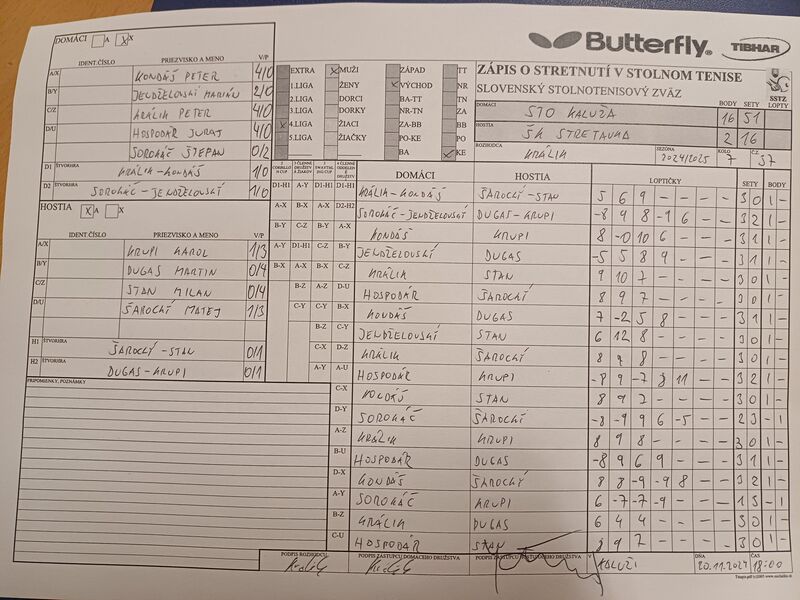 DOMÁCI A X X
IDENT.ČÍSLO PRIEZVISKO A MENO V/P
A/X KONDÁŠ PETER 4/0
B/Y JENDŽELOVSKÝ MARIÁN 2/0
C/Z KRÁLIK PETER 4/0
D/U HOSPODÁR JURAJ 4/0
SOROKÁČ ŠTEPAN 0/2
D1 ŠTVORHRA KRÁLIK-KONDÁŠ 1/0
D2 ŠTVORHRA SOROKÁČ-JENDŽELOVSKÝ 1/0
HOSTIA X A X
IDENT.ČÍSLO PRIEZVISKO A MENO V/P
A/X KRUPI KAROL 1/3
B/Y DUGAS MARTIN 0/4
C/Z STAN MILAN 0/4
D/U ŠAROCKÝ MATEJ 1/3
H1 ŠTVORHRA ŠAROCKÝ-STAN 0/1
H2 ŠTVORHRA DUGAS-KRUPI 0/1
PRIPOMIENKY, POZNÁMKY
EXTRA X MUŽI ZÁPAD TT
1.LIGA ŽENY X VÝCHOD NR
2.LIGA DORCI BA-TT TN
3.LIGA DORKY NR-TN ZA
X 4.LIGA ŽIACI ZA-BB BB
5.LIGA ŽIAČKY PO-KE PO
BA X KE
Butterfly TIBHAR
ZÁPIS O STRETNUTÍ V STOLNOM TENISE
SLOVENSKÝ STOLNOTENISOVÝ ZVÄZ
SSTZ
DOMÁCI STO KALUŽA BODY 16 SETY 51 LOPTY
HOSTIA ŠK STRETAVKA 2 16
ROZHODCA KRÁLIK SEZÓNA 2024/2025 KOLO 7 Č.Z. 57
DOMÁCI HOSTIA LOPTIČKY SETY BODY
D1-H1 A-Y D1-H1 D1-H1 KRÁLIK-KONDÁŠ ŠAROCKÝ-STAN 5 6 9 - - - - 3 0 1 -
A-X B-X A-X D2-H2 SOROKÁČ-JENDŽELOVSKÝ DUGAS-KRUPI -8 9 8 -9 6 - - 3 2 1 -
B-Y C-Z B-Y A-X KONDÁŠ KRUPI 8 -10 10 6 - - - 3 1 1 -
A-Y D1-H1 C-Z B-Y JENDŽELOVSKÝ DUGAS -5 5 8 9 - - - 3 1 1 -
B-X A-X B-X C-Z KRÁLIK STAN 9 10 7 - - - - 3 0 1 -
B-Z A-Z D-U HOSPODÁR ŠAROCKÝ 8 9 7 - - - - 3 0 1 -
C-Y C-Y B-X KONDÁŠ DUGAS 7 -2 5 8 - - - 3 1 1 -
B-Z C-Y JENDŽELOVSKÝ STAN 6 12 8 - - - - 3 0 1 -
C-X D-Z KRÁLIK ŠAROCKÝ 8 9 8 - - - - 3 0 1 -
A-Y A-U HOSPODÁR KRUPI -8 9 -7 8 11 - - 3 2 1 -
C-X KONDÁŠ STAN 8 9 2 - - - - 3 0 1 -
D-Y SOROKÁČ ŠAROCKÝ -8 -9 9 6 -5 - - 2 3 - 1
A-Z KRÁLIK KRUPI 8 9 8 - - - - 3 0 1 -
B-U HOSPODÁR DUGAS -8 9 6 9 - - - 3 1 1 -
D-X KONDÁŠ ŠAROCKÝ 8 8 -9 -9 8 - - 3 2 1 -
A-Y SOROKÁČ KRUPI 6 -7 -7 -9 - - - 1 3 - 1
B-Z KRÁLIK DUGAS 6 4 4 - - - - 3 0 1 -
C-U HOSPODÁR STAN 8 9 7 - - - - 3 0 1 -
PODPIS ROZHODCU PODPIS ZÁSTUPCU DOMÁCEHO DRUŽSTVA PODPIS ZÁSTUPCU HOSŤUJÚCEHO DRUŽSTVA V KALUŽI DŇA 20.11.2024 ČAS 18:00